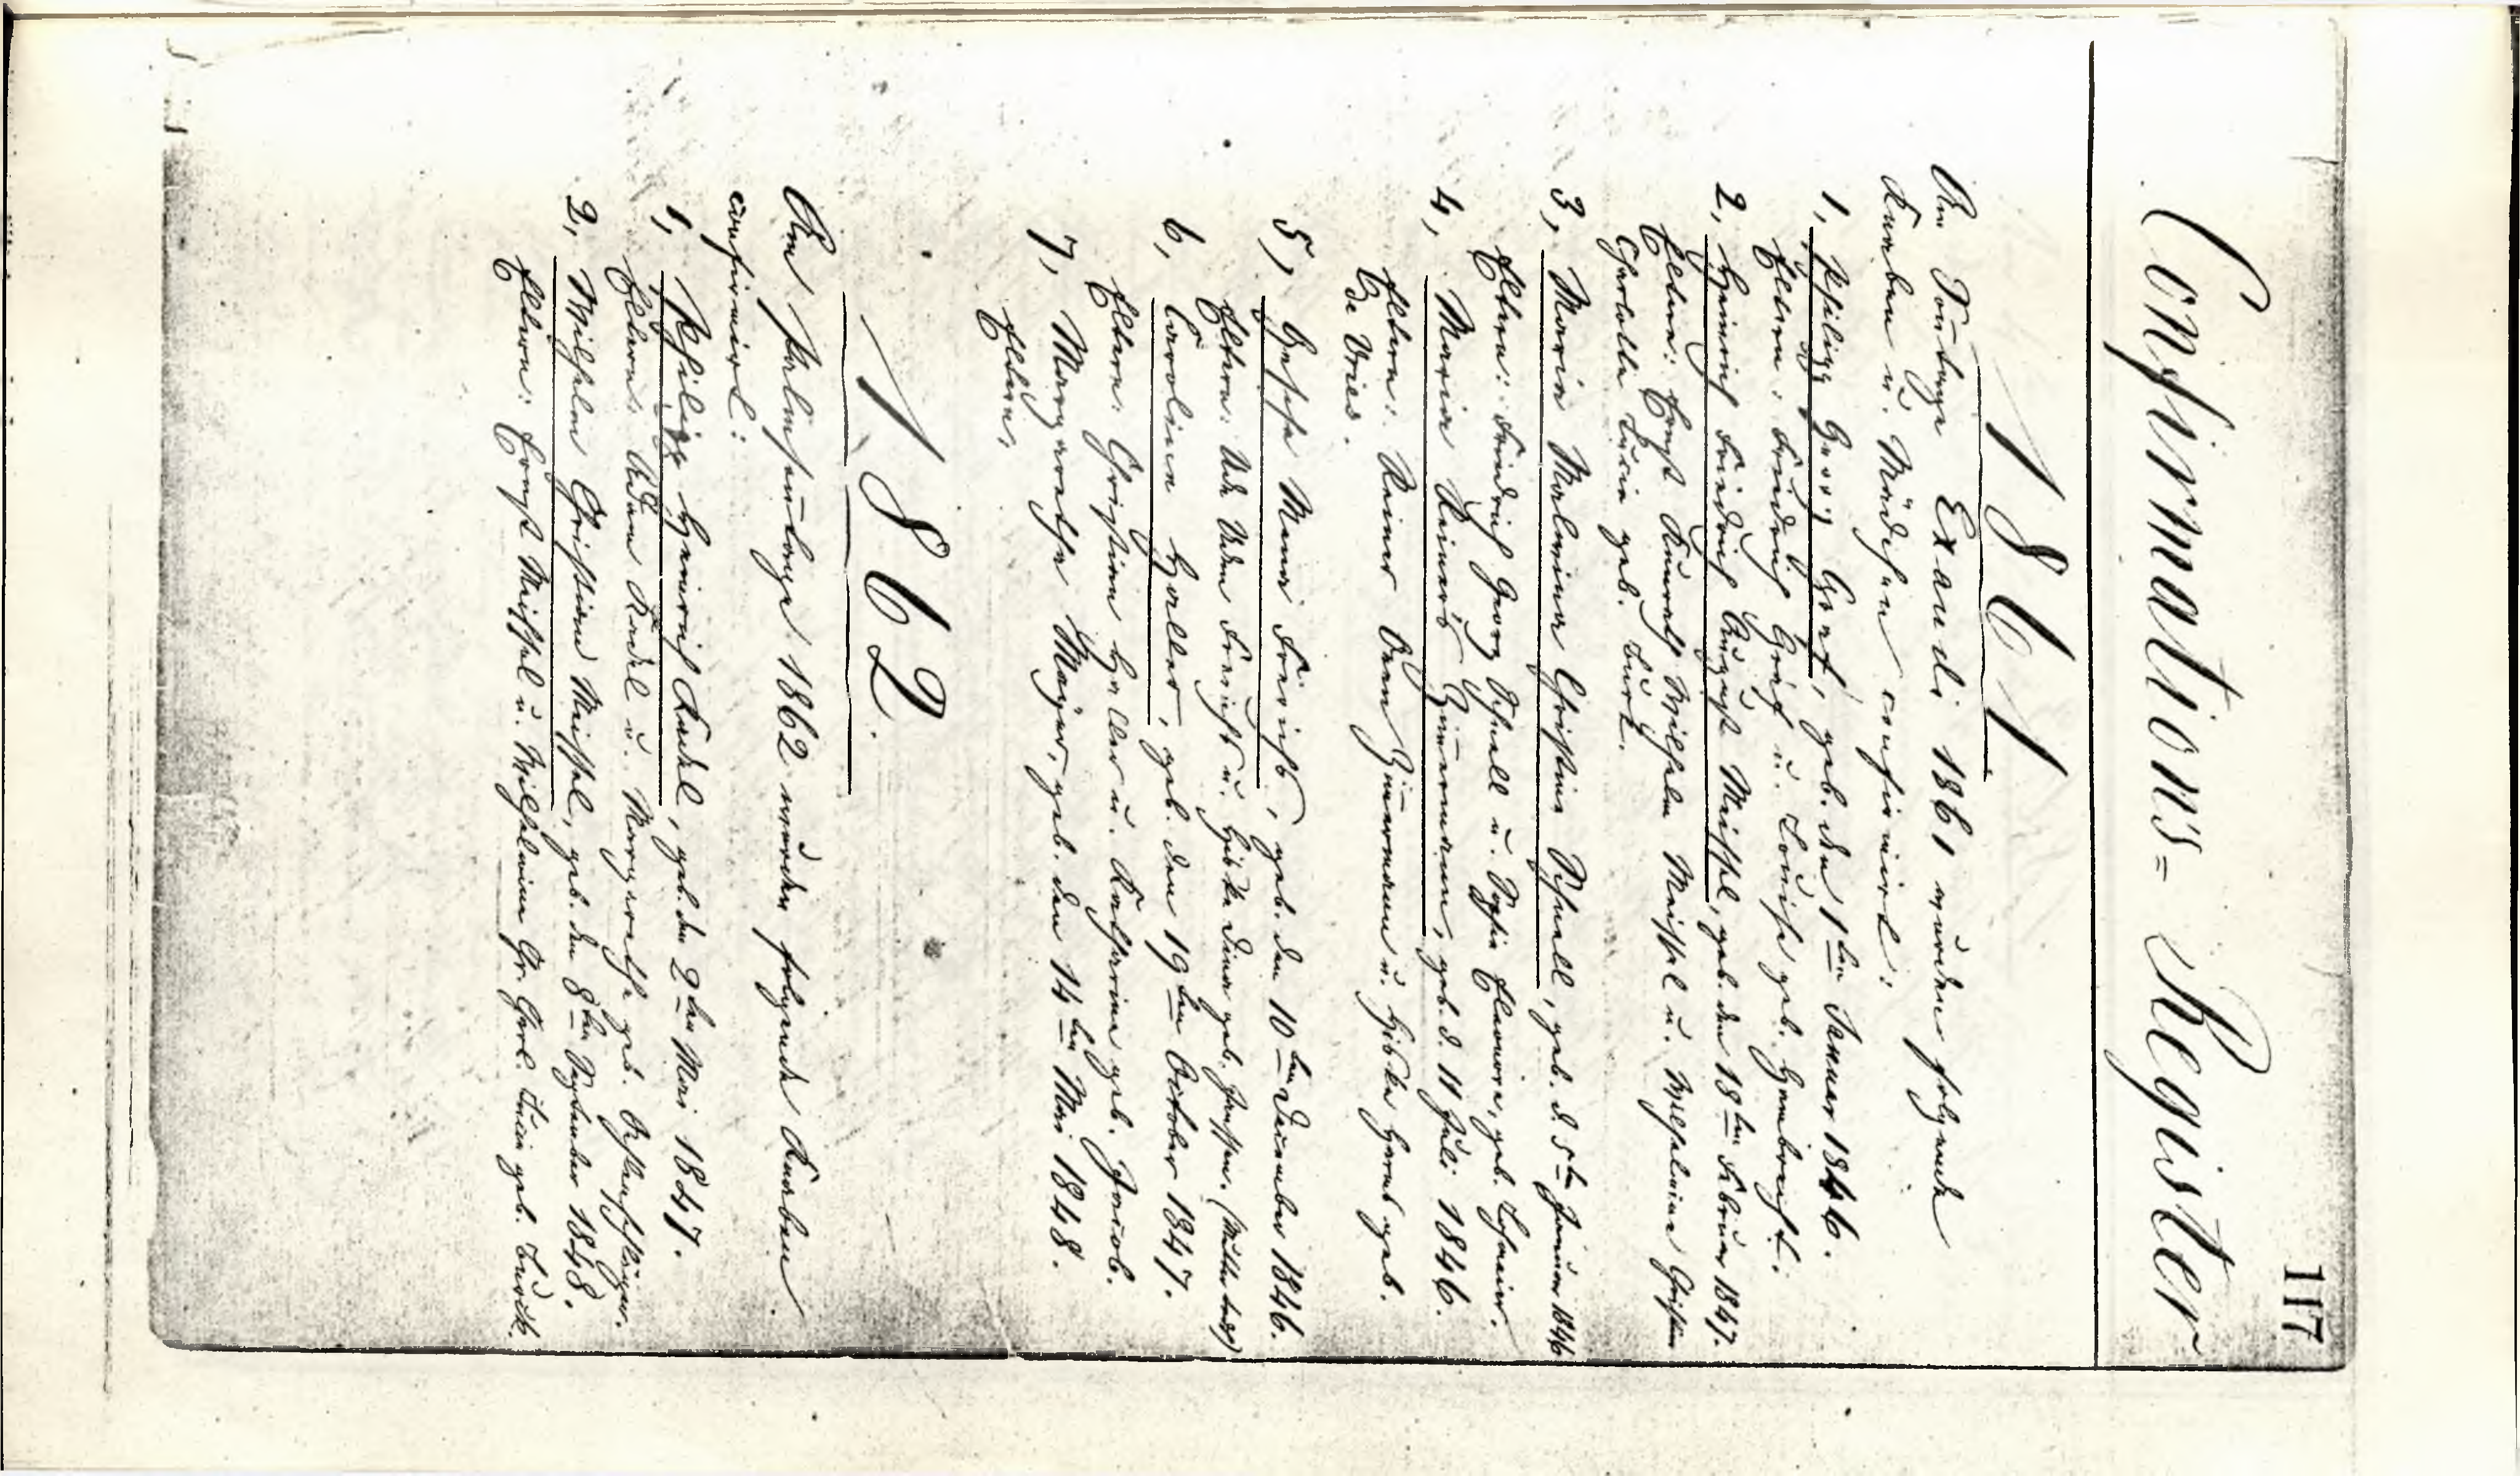 117
Confirmations= Register
1861
Am Sontage Exaudi 1861 wurden folgende
Knaben u. Mädchen confirmirt:
1, Philipp Georg Graf, geb. den 1ten Januar 1846.
Eltern: Friedrich Graf u. Louise geb. Hambrecht.
2, Heinrich Friedrich August Meissel, geb. den 18ten Februar 1847.
Eltern: Ernst Kunrath Wilhelm Meissel u. Wilhelmine Christine
Charlotte Lucie geb. Türk.
3, Marie Malwine Christine Schnell, geb. d. 5ten Januar 1846
Eltern: Friedrich Georg Schnell u. Sophie Eleonore, geb. Schneider.
4, Maria Reiners Zimermann, geb. d. 11 Juli 1846.
Eltern: Reiner Veen Zimermann u. Hibke Harms geb.
de Vries.
5, Gesche Mena Frerichs, geb. den 10ten December 1846.
Eltern: Ude Uden Frerichs u. Hibke Dina geb. Janssen.
6, Caroline Haller, geb. den 19ten October 1847.
Eltern: Christian Haller u. Katharina geb. Jacob.
7, Margarethe Majer, geb. den 14ten Mai 1848.
Eltern,
1862.
Am Palmsontage 1862 wurden folgende Knaben
confirmirt:
1, Philipp Heinrich Kuhl, geb. den 2ten Mai 1847.
Eltern: Adam Kuhl u. Margarethe geb.
2, Wilhelm Christian Meissel, geb. den 8ten September 1848.
Eltern: Ernst Meissel u. Wilhelmine Chr. Charl. Lucie geb. Türk.